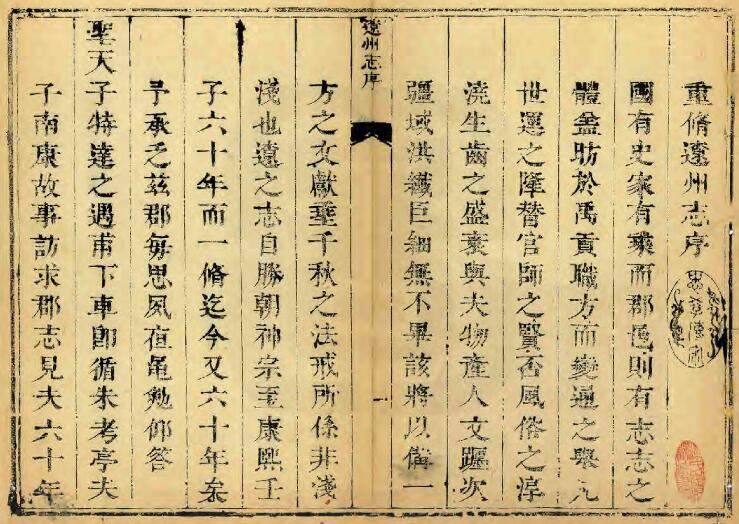 重脩遼州志序
國有史家有乘而郡邑則有志志之
體葢昉於禹貢職方而變通之舉凡
世運之隆替官師之賢否風俗之淳
澆生齒之盛衰與夫物產人文躔次
疆域洪纖巨細無不畢該將以備一
遼州志序
方之文獻垂千秋之法戒所係非淺
淺也遼之志自勝朝神宗至康熙壬
子六十年而一脩迄今又六十年矣
予承乏茲郡每思夙夜黽勉仰答
聖天子特達之遇甫下車卽循朱考亭夫
子南康故事訪求郡志見夫六十年